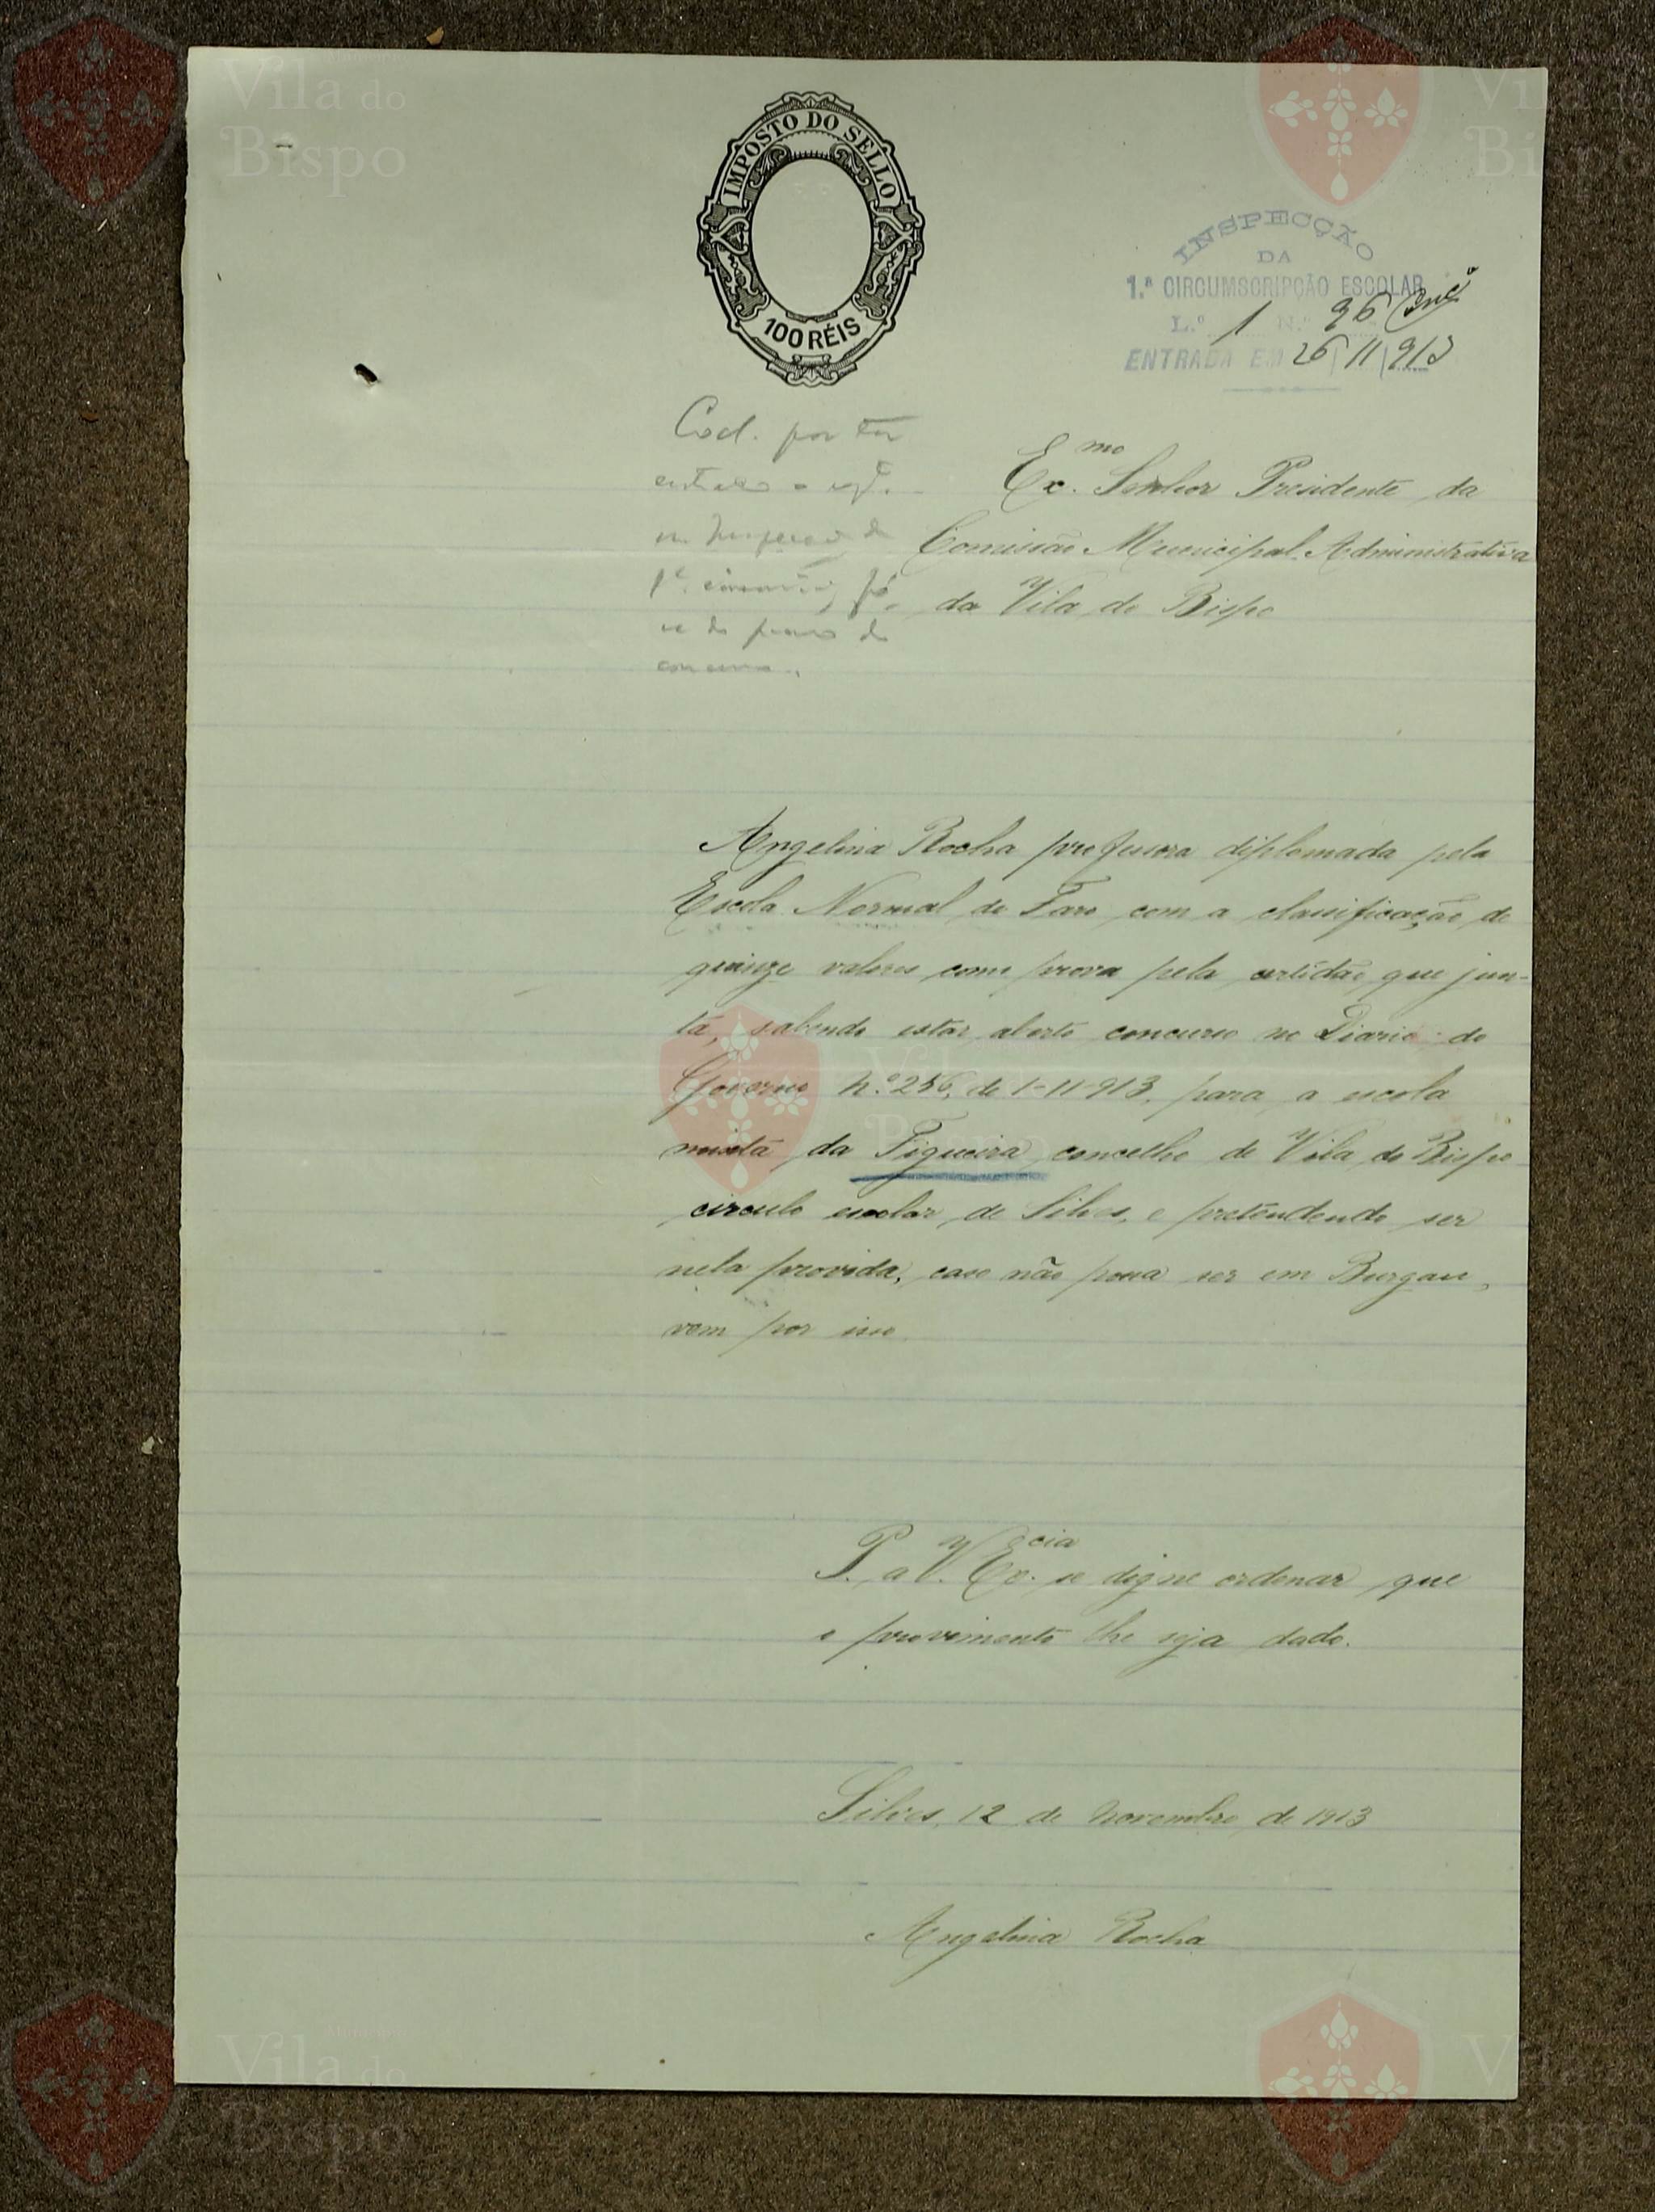 IMPOSTO DO SELLO
100 RÉIS
INSPECÇÃO
DA
1.ª CIRCUMSCRIPÇÃO ESCOLAR
L.º 1 N.º 96
ENTRADA EM 26/11/913
Ex.mo Senhor Presidente da
Comissão Municipal Administrativa
da Vila do Bispo
Cod. por ter
entrado o
na Inspecção da
1.ª
se do prazo do
concurso.
Angelina Rocha professora diplomada pela
Escola Normal de Faro com a classificação de
quinze valores como prova pela certidão que jun-
ta, sabendo estar aberto concurso no Diario do
Governo N.º 256, de 1-11-913, para a escola
mixta da Figueira concelho de Vila do Bispo
circulo escolar de Silves, e pretendendo ser
nela provida, caso não possa ser em Burgau,
vem por isso
P. a V. Ex.cia se digne ordenar que
o provimento lhe seja dado.
Silves, 12 de Novembro de 1913
Angelina Rocha
Vila do
Bispo
Vila do
Bispo
Vila do
Bispo
Vila do
Bispo
Vila do
Bispo